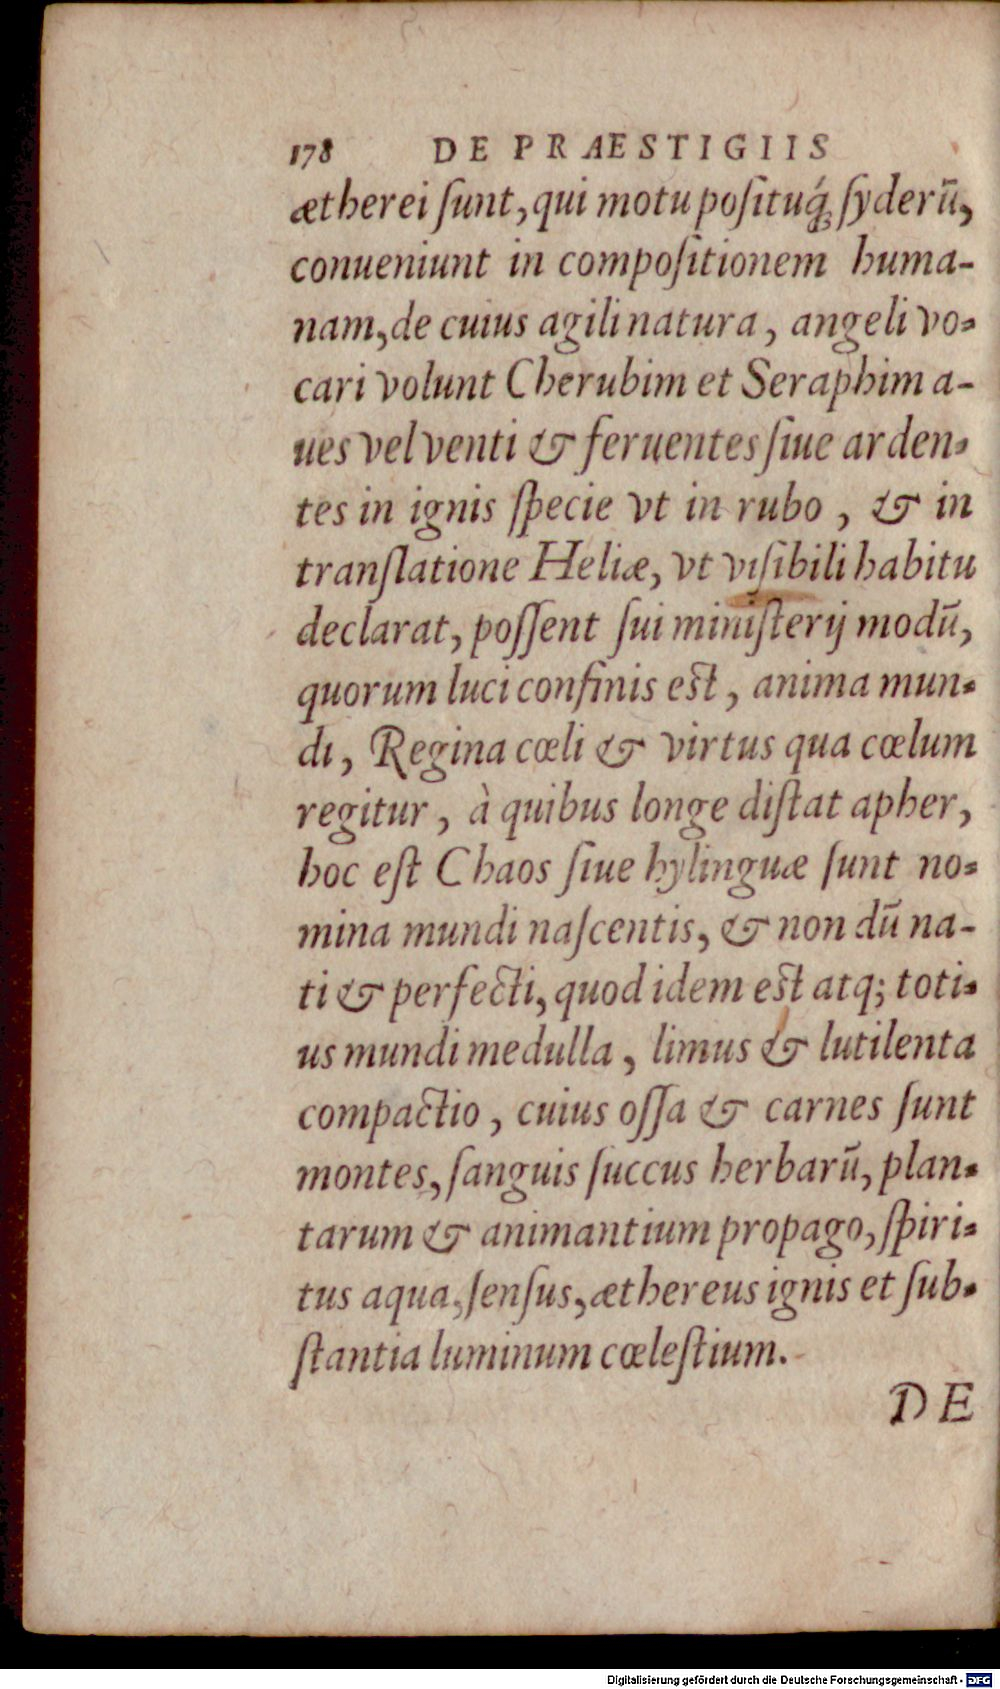 178 DE PRAESTIGIIS
ætherei ſunt, qui motu poſituq́; ſyderū,
conueniunt in compoſitionem huma-
nam, de cuius agili natura, angeli vo-
cari volunt Cherubim et Seraphim a-
ues vel venti & feruentes ſiue arden-
tes in ignis ſpecie vt in rubo, & in
tranſlatione Heliæ, vt viſibili habitu
declarat, poſſent ſui miniſterij modū,
quorum luci confinis est, anima mun-
di, Regina cœli & virtus qua cœlum
regitur, à quibus longe diſtat apher,
hoc eſt Chaos ſiue hylinguæ ſunt no-
mina mundi naſcentis, & non dū na-
ti & perfecti, quod idem est atq; toti-
us mundi medulla, limus & lutilenta
compactio, cuius oſſa & carnes ſunt
montes, ſanguis ſuccus herbarū, plan-
tarum & animantium propago, ſpiri-
tus aqua, ſenſus, æthereus ignis et ſub-
ſtantia luminum cœleſtium.
DE
Digitalisierung gefördert durch die Deutsche Forschungsgemeinschaft - DFG